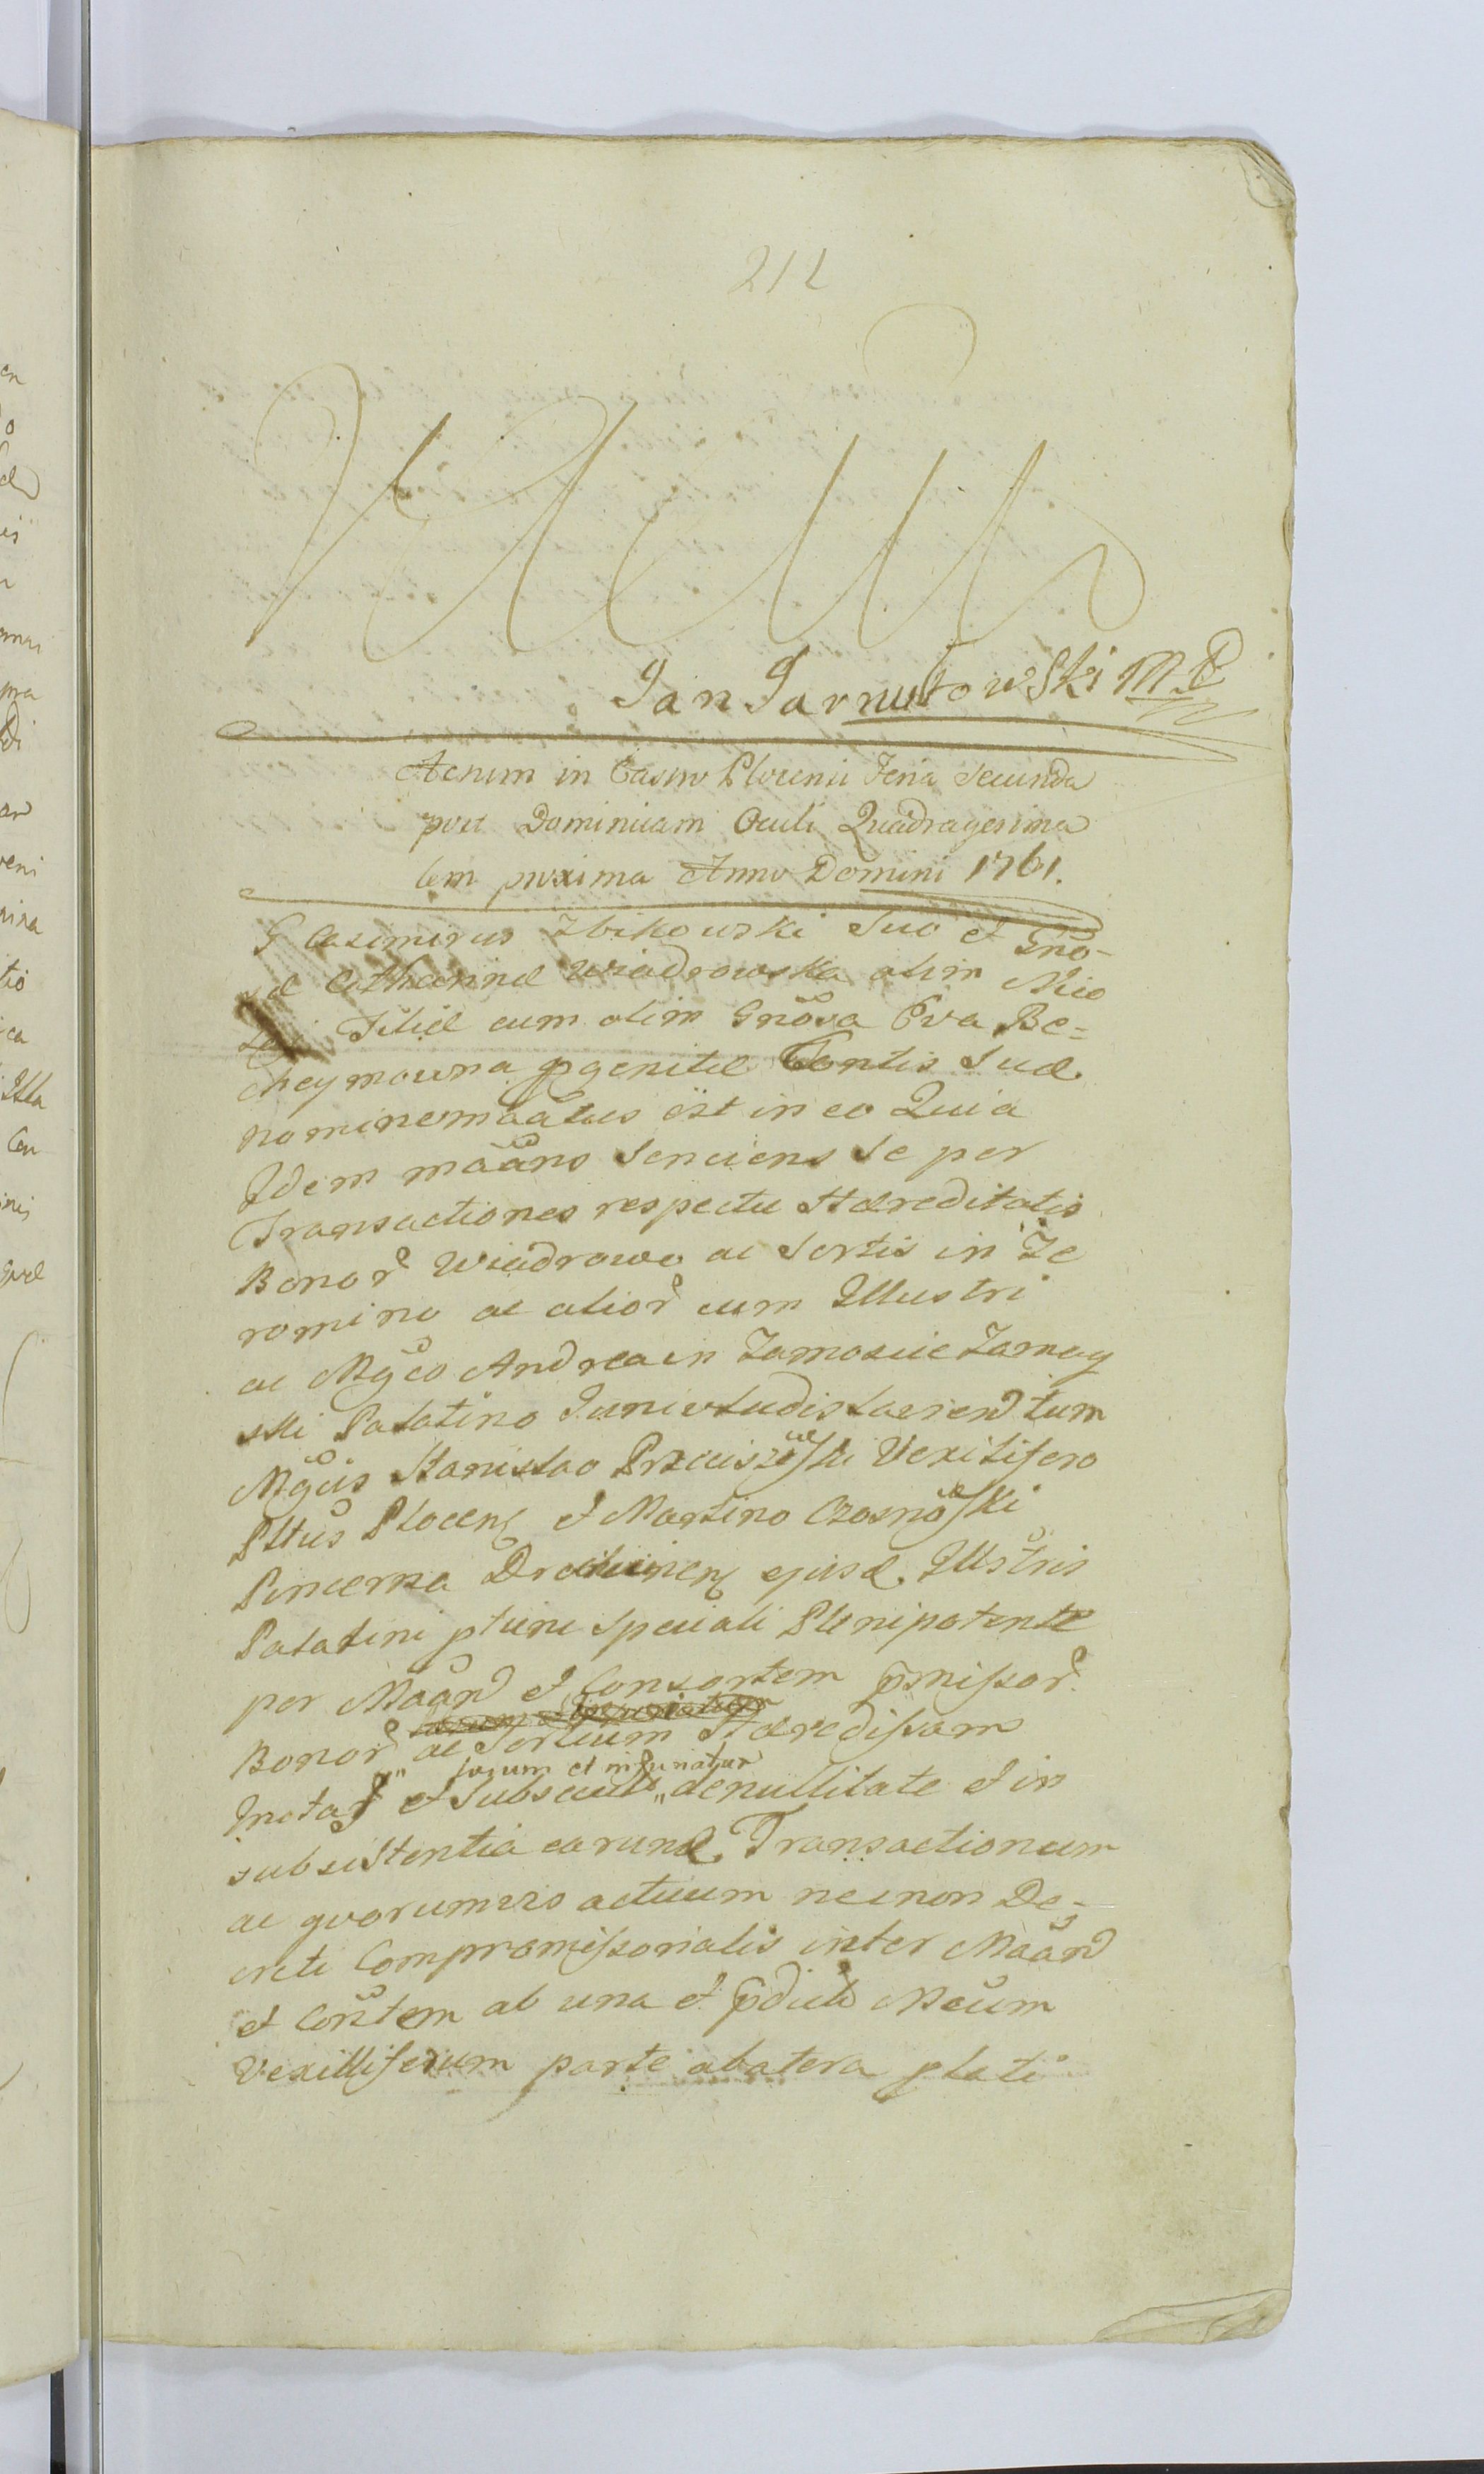 212
Jan Jarnutowski mp
Actum in Castro Plocensi Feria Secunda
post Dominicam Oculi Quadragesima
lem proxima Anno Domini 1761.
G Casimirus Zbikowski Suo et Gnõ-
sæ Catharinæ Wiadrowska olim Nico
lai Filiæ cum olim Gnõsa Eva Be=
cheymowna pgenitæ Contis Suæ
nomine mãatus est in eo Quia
Idem mãans Senciens Se per
Transactiones respectu Hæreditatis
Bonor Wiadrowo ac Sortis in Ze
romino ac alior cum Illustri
ac Mgco Andrea in Zamoscie Zamoy
ski Palatino Inowladislaviend tum
Mgcis Stanislao Przeciszewski Vexilifero
Pltus Plocens et Martino Czosnowski
Pincerna Drohicinens ejusd. Illstris
Palatini pleni Speciali Plenipotente
per Mãand et Consortem pmissor
Bonor ac Sortium Hæredissam
jurum et infuriatur
Inotas et Subsecut „ de nullitate et in
subsistentia earund. Transactionum
ac quorumvis actuum necnon De=
creti Compromissorialis inter Mãand
et Contem ab una et pdictu Mcum
Vexilliferum parte ab altera plati